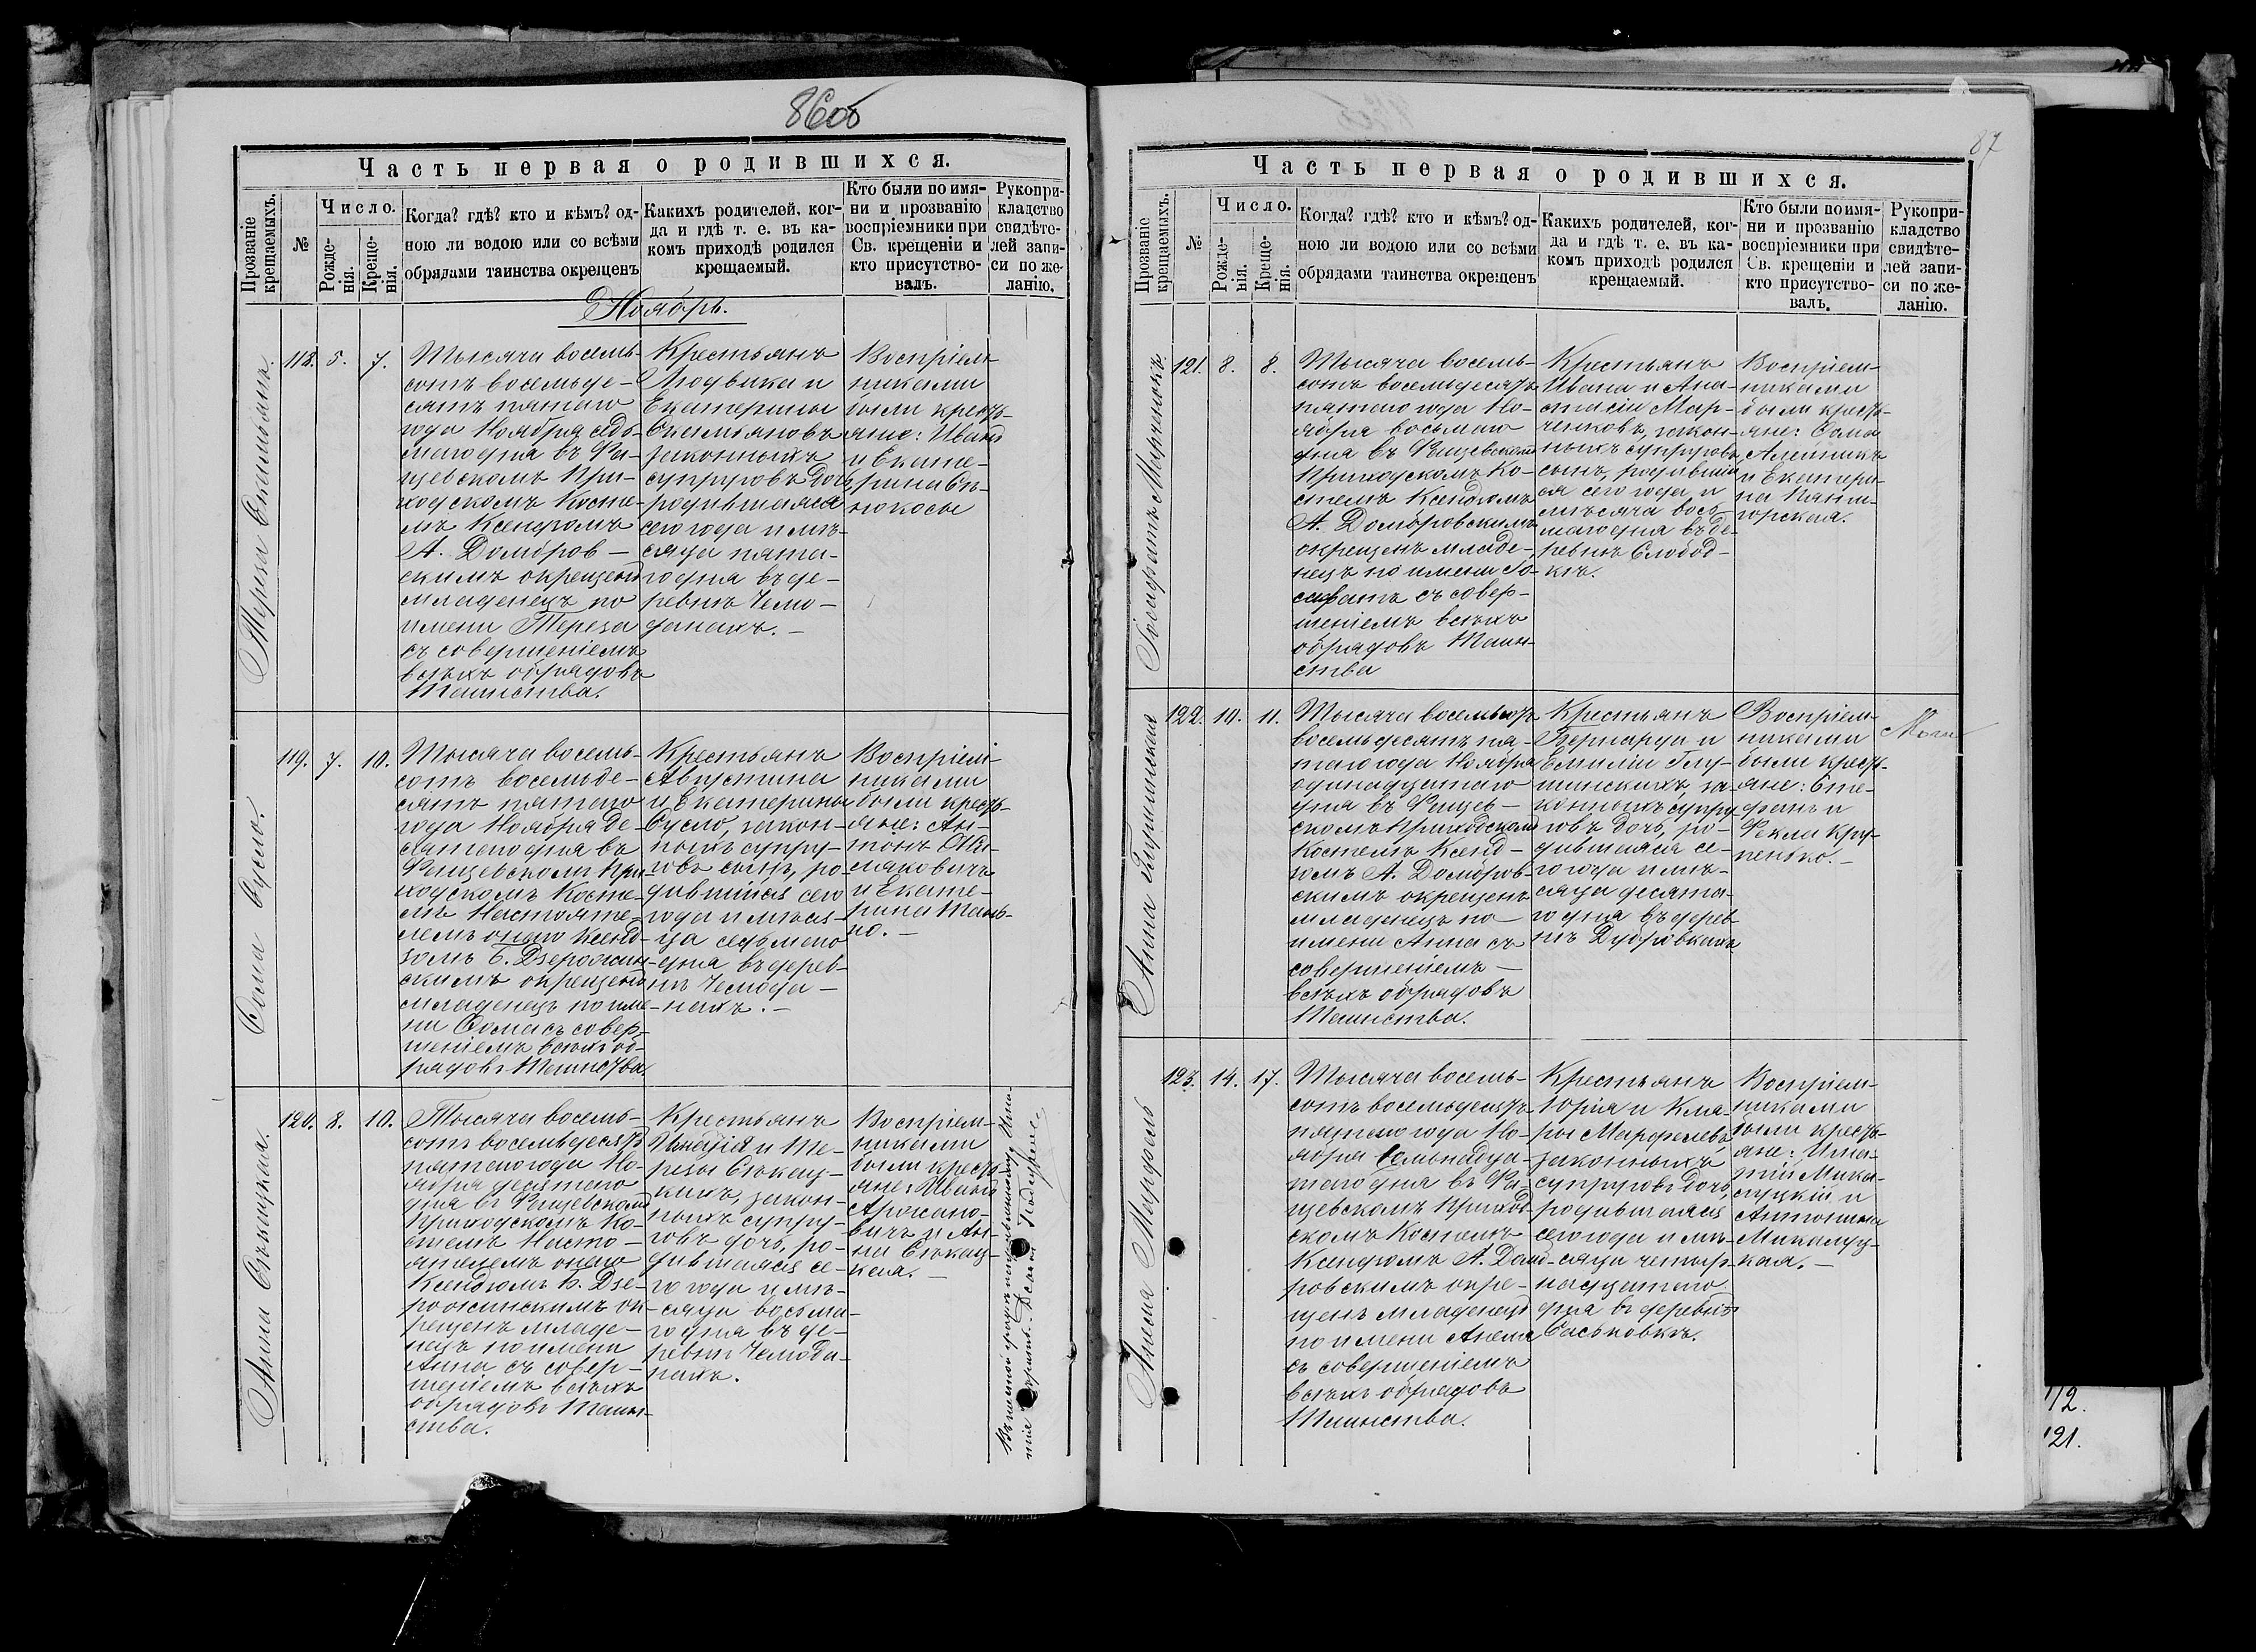 86об
Часть первая о родившихся.
Прозваніе крещаемыхъ.
№
Число.
Рожде-
нія.
Креще-
нія.
Когда? гдѣ? кто и кѣмъ? од-
ною ли водою или со всѣми
обрядами таинства окрещенъ
Какихъ родителей, ког-
да и гдѣ т. е. въ ка-
комъ приходѣ родился
крещаемый.
Кто были по имя-
ни и прозванію
воспріемники при
Св. крещеніи и
кто присутство-
валъ.
Рукопри-
кладство
свидѣте-
лей запи-
си по же-
ланію.
Ноябрь.
118. 5. 7.
Тысяча восемь-
сотъ восемьде-
сятъ пятаго
года Ноября седь-
маго дня въ Фа-
щевскомъ При-
ходскомъ Косте-
лѣ Ксендзомъ
А. Домбров-
скимъ окрещенъ
младенецъ по
имени Тереза
съ совершеніемъ
всѣхъ обрядовъ
Таинства.
Крестьянъ
Людвика и
Екатерины
законныхъ
супруговъ дочь,
родившаяся
сего года и мѣ-
сяца пята-
го дня въ де-
ревнѣ Чемо-
данахъ.
Воспріем-
никами
были кресть-
яне: Иванъ
и Екате-
рина
119. 7. 10.
Ѳома Сусло.
Тысяча восемь-
сотъ восемьде-
сятъ пятаго
года Ноября де-
сятаго дня въ
Фащевскомъ При-
ходскомъ Косте-
лѣ Настояте-
лемъ онаго Ксенд-
зомъ Б. Дзерожин-
скимъ окрещенъ
младенецъ по име-
ни Ѳома съ совер-
шеніемъ всѣхъ об-
рядовъ Таинства
Крестьянъ
Августина
и Екатерины
Сусло, закон-
ныхъ супру-
говъ сынъ, ро-
дившійся сего
года и мѣся-
ца седьмаго
дня въ дерев-
нѣ Чемода-
нахъ.
Воспріем-
никами
были кресть-
яне: Ан-
тонъ
и Екате-
рина
120. 8. 10.
Тысяча восемь-
сотъ восемьдесятъ
пятаго года Но-
ября десятаго
дня въ Фащевскомъ
Приходскомъ Ко-
стелѣ Насто-
ятелемъ онаго
Ксендзомъ Б. Дзе-
рожинскимъ ок-
рещенъ младе-
нецъ по имени
Анна съ совер-
шеніемъ всѣхъ
обрядовъ Таин-
ства.
Крестьянъ
Игнатія и Те-
резы Сюкац-
кихъ, закон-
ныхъ супру-
говъ дочь, ро-
дившаяся се-
го года и мѣ-
сяца восьма-
го дня въ де-
ревнѣ Чемода-
нахъ.
Воспріем-
никами
были кресть-
яне: Иванъ
Аржано-
вичъ и Ан-
на Сюкац-
кая.
87
Часть первая о родившихся.
Прозваніе крещаемыхъ.
№
Число.
Рожде-
нія.
Креще-
нія.
Когда? гдѣ? кто и кѣмъ? од-
ною ли водою или со всѣми
обрядами таинства окрещенъ
Какихъ родителей, ког-
да и гдѣ т. е. въ ка-
комъ приходѣ родился
крещаемый.
Кто были по имя-
ни и прозванію
воспріемники при
Св. крещеніи и
кто присутство-
валъ.
Рукопри-
кладство
свидѣте-
лей запи-
си по же-
ланію.
Іосафатъ Марченокъ
121. 8. 8.
Тысяча восемь-
сотъ восемьдесятъ
пятаго года Но-
ября восьмаго
дня въ Фащевскомъ
Приходскомъ Ко-
стелѣ Ксендзомъ
А. Домбровскимъ
окрещенъ младе-
нецъ по имени Іо-
сафатъ съ совер-
шеніемъ всѣхъ
обрядовъ Таин-
ства
Крестьянъ
Ивана и Ана-
стасіи Мар-
ченковъ, закон-
ныхъ супруговъ
сынъ, родивший-
ся сего года и
мѣсяца вось-
маго дня въ де-
ревнѣ Слобод-
кѣ.
Воспріем-
никами
были кресть-
яне: Ѳома
и Екатери-
на
122. 10. 11.
Анна Глушинская
Тысяча восемьсотъ
восемьдесятъ пя-
таго года Ноября
одинадцатаго
дня въ Фащев-
скомъ Приходскомъ
Костелѣ Ксенд-
зомъ А. Домбров-
скимъ окрещенъ
младенецъ по
имени Анна съ
совершеніемъ
всѣхъ обрядовъ
Таинства.
Крестьянъ
Бернарда и
Емиліи Глу-
шинскихъ, за-
конныхъ супру-
говъ дочь, ро-
дившаяся се-
го года и мѣ-
сяца десята-
го дня въ дерев-
нѣ Дубровкахъ
Воспріем-
никами
были кресть-
яне: Сте-
фанъ и
Ѳекла Кру-
пенько.
123. 14. 17.
Анеля Марфель
Тысяча восемь-
сотъ восемьдесятъ
пятаго года Но-
ября семьнадца-
таго дня въ Фа-
щевскомъ Приход-
скомъ Костелѣ
Ксендзомъ А. Домб-
ровскимъ окре-
щенъ младенецъ
по имени Анеля
съ совершеніемъ
всѣхъ обрядовъ
Таинства.
Крестьянъ
Юрія и Кла-
ры Марфелевъ
законныхъ
супруговъ дочь,
родившаяся
сего года и мѣ-
сяца четыр-
надцатаго
дня въ деревнѣ
Саськовкѣ.
Воспріем-
никами
были кресть-
яне: Игна-
тій Мика-
луцкій и
Антонина
Микалуц-
кая.
112.
121.